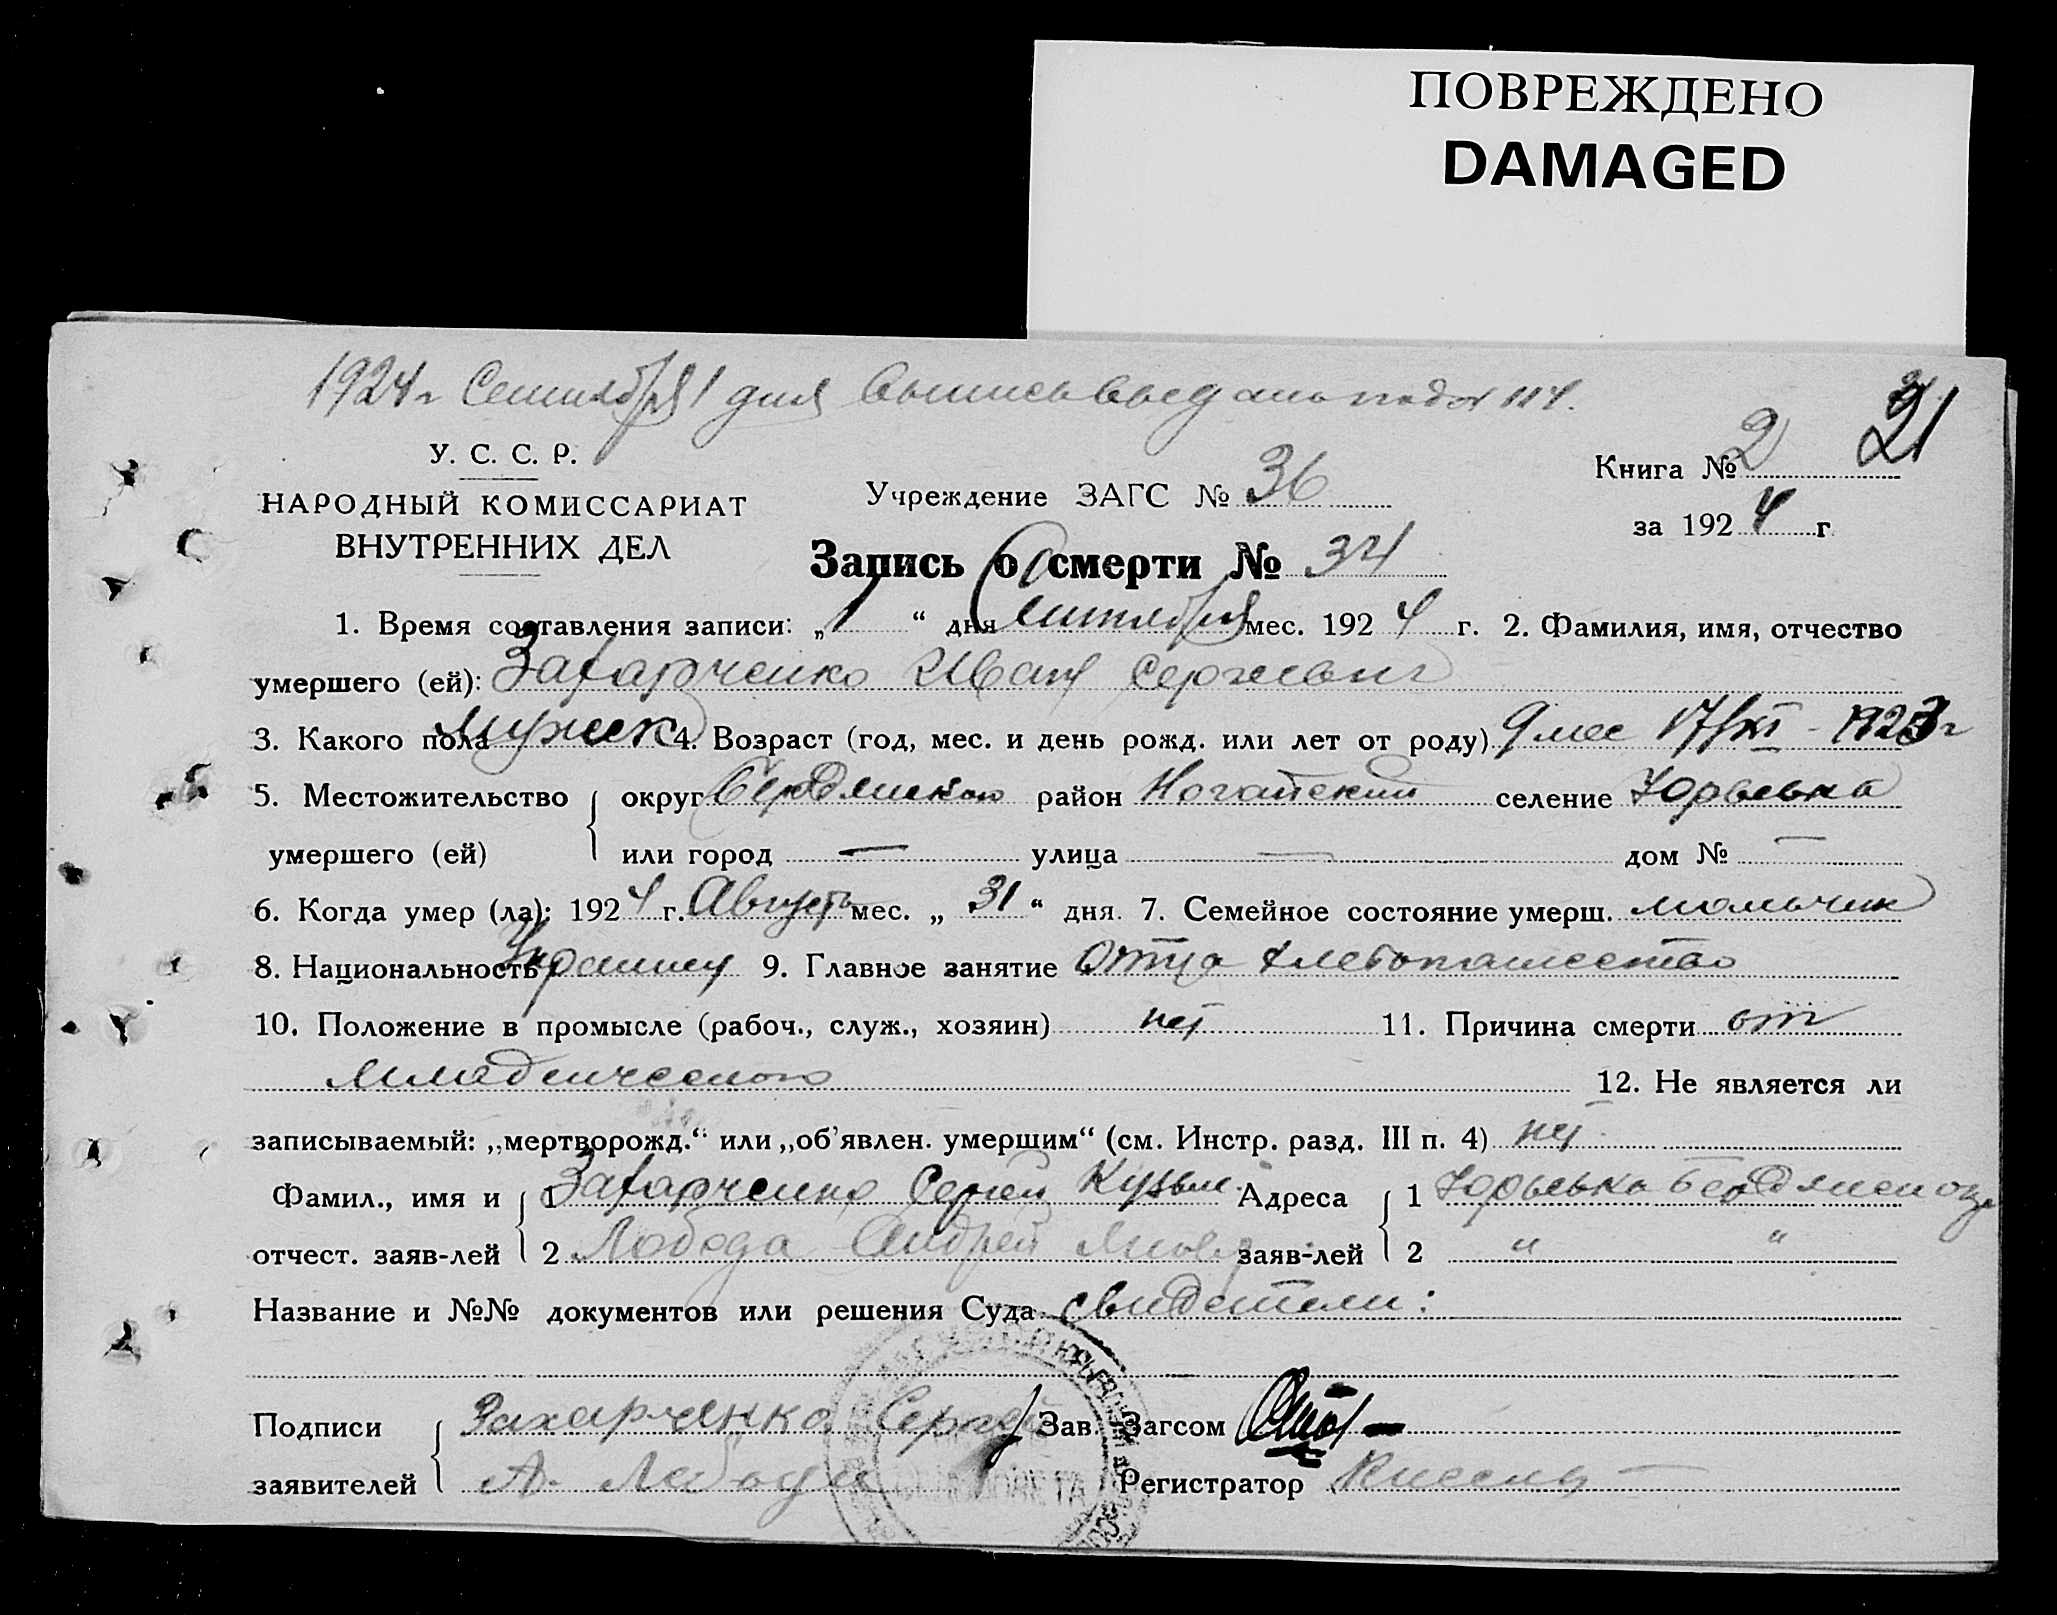 ПОВРЕЖДЕНО
DAMAGED
1924 г Сентября 1 дня выпись выдана под № 114.
21
У. С. С. Р.
НАРОДНЫЙ КОМИССАРИАТ
ВНУТРЕННИХ ДЕЛ
Учреждение ЗАГС № 36
Книга № 2
за 1924 г.
Запись о смерти № 34
1. Время составления записи: „1“ дня Сентября мес. 1924 г. 2. Фамилия, имя, отчество
умершего (ей): Захарченко Иван Сергеевич
3. Какого пола мужск 4. Возраст (год, мес. и день рожд. или лет от роду) 9 мес 17/XI - 1923 г
5. Местожительство умершего (ей) { округ Бердянского район Ногайский селение Юрьевка
или город — улица — дом № —
6. Когда умер (ла): 1924 г. Августа мес. „31“ дня. 7. Семейное состояние умерш. мальчик
8. Национальность Украинец 9. Главное занятие Отца хлебопашество
10. Положение в промысле (рабоч., служ., хозяин) нет 11. Причина смерти от
младенческого 12. Не является ли
записываемый: „мертворожд.“ или „об'явлен. умершим“ (см. Инстр. разд. III п. 4) нет
Фамил., имя и отчест. заяв-лей { 1 Захарченко Сергей Кузьм. Адреса заяв-лей { 1 Юрьевка Бердянск
2 Лобода Андрей 2 " "
Название и №№ документов или решения Суда свидетели:
Подписи заявителей { Захарченко Сергей Зав. Загсом
А. Лобода Регистратор